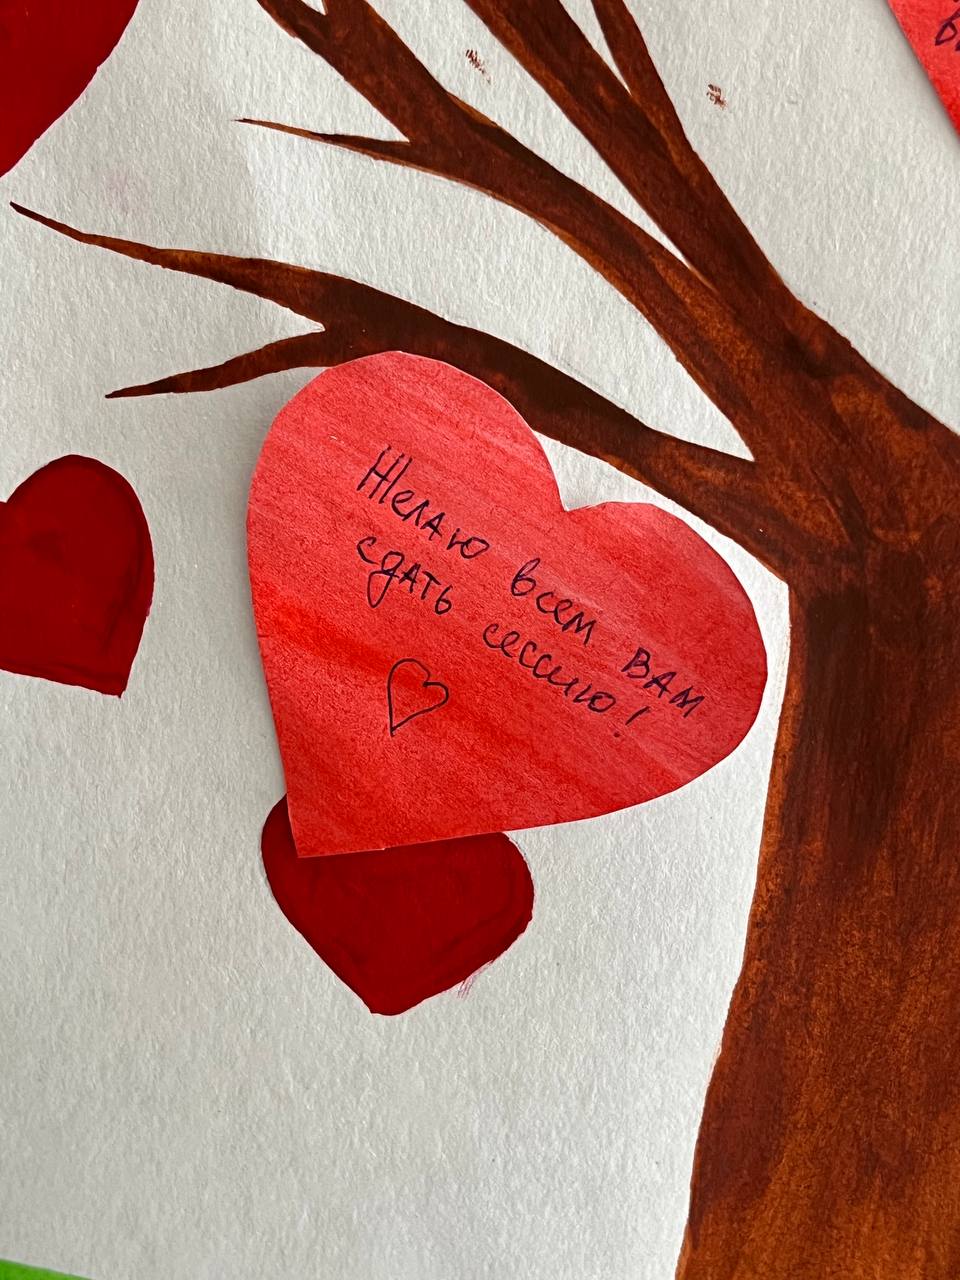 Желаю всем вам
сдать сессию!